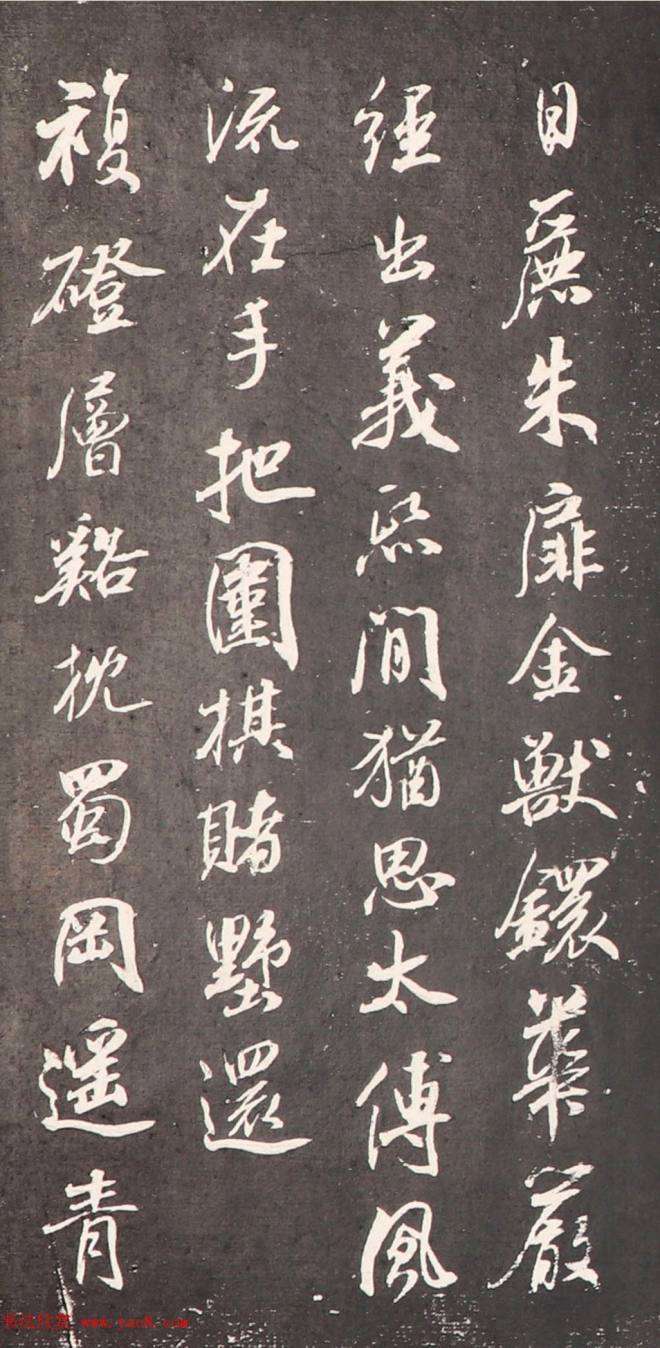 日麗朱扉金獸鐶華嚴
經出義熙間猶思太傅風
流在手把圍棋賭墅還
複磴層谿枕蜀岡遙青
书法欣赏 www.yac8.com